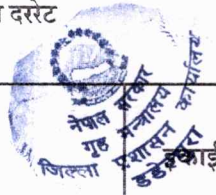 दररेट
नेपाल सरकार
गृह मन्त्रालय
जिल्ला प्रशासन कार्यालय
डडेल्धुरा